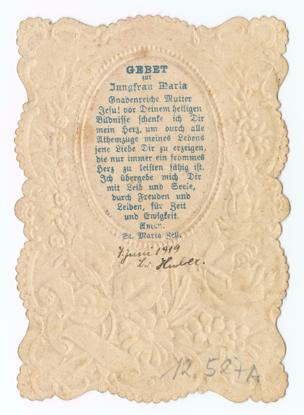 GEBET
zur
Jungfrau Maria
Gnadenreiche Mutter
Jesu! vor Deinem heiligen
Bildnisse schenke ich Dir
mein Herz, um durch alle
Athemzüge meines Lebens
jene Liebe Dir zu erzeigen,
die nur immer ein frommes
Herz zu leisten fähig ist.
Ich übergebe mich Dir
mit Leib und Seele,
durch Freuden und
Leiden, für Zeit
und Ewigkeit.
Amen.
St. Maria Zell.
7. Juni 1919
12.527A